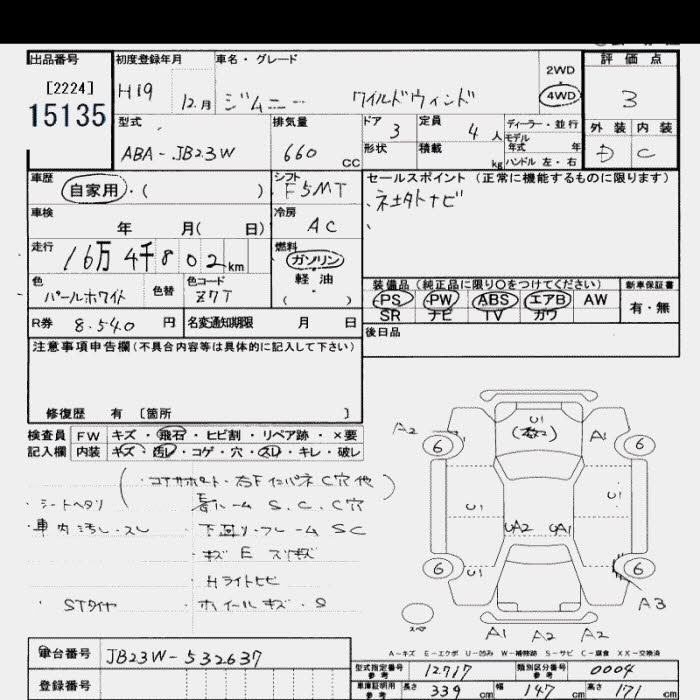 出品番号
[2224]
15135
初度登録年月
H19 12月
車名・グレード
ジムニー ワイルドウィンド
2WD
4WD
評価点
3
外装 内装
D C
型式
ABA-JB23W
排気量
660 cc
ドア 3
定員 4人
形状
積載 kg
ディーラー・並行
モデル年式 年
ハンドル 左・右
車歴
自家用・( )
シフト
F5MT
セールスポイント (正常に機能するものに限ります)
・社外ナビ
車検
年 月( 日)
冷房
AC
走行
16万4千802km
燃料
ガソリン
軽油
( )
色
パールホワイト
色替
色コード
Z7T
装備品 (純正品に限り○をつけてください)
PS PW ABS エアB AW
SR ナビ TV カワ
新車保証書
有・無
R券 8.540円
名変通知期限 月 日
後日品
注意事項申告欄(不具合内容等は具体的に記入して下さい)
修復歴 有 [箇所 ]
検査員 FW キズ・飛石・ヒビ割・リペア跡・×要
記入欄 内装 キズ・汚レ・コゲ・穴・スレ・キレ・破レ
(コアサポート・右Fインパネ C穴 他)
・シートヘタリ
S.C.C穴
・車内汚レ・スレ
・下廻リ・フレーム SC
・キズ E スリキズ
・Hライトヒビ
・STタイヤ
・ホイールキズ・S
A2
U1
A1
6
6
U1
U1
UA2
UA1
6
U1
6
A3
スペア
A1 A2 A2
A-キズ E-エクボ U-凹み W-補修跡 S-サビ C-腐食 XX-交換済
車台番号 JB23W-532637
登録番号
型式指定番号 参考 12717
類別区分番号 参考 0004
車庫証明用 参考 長さ 339 cm 幅 147 cm 高さ 171 cm